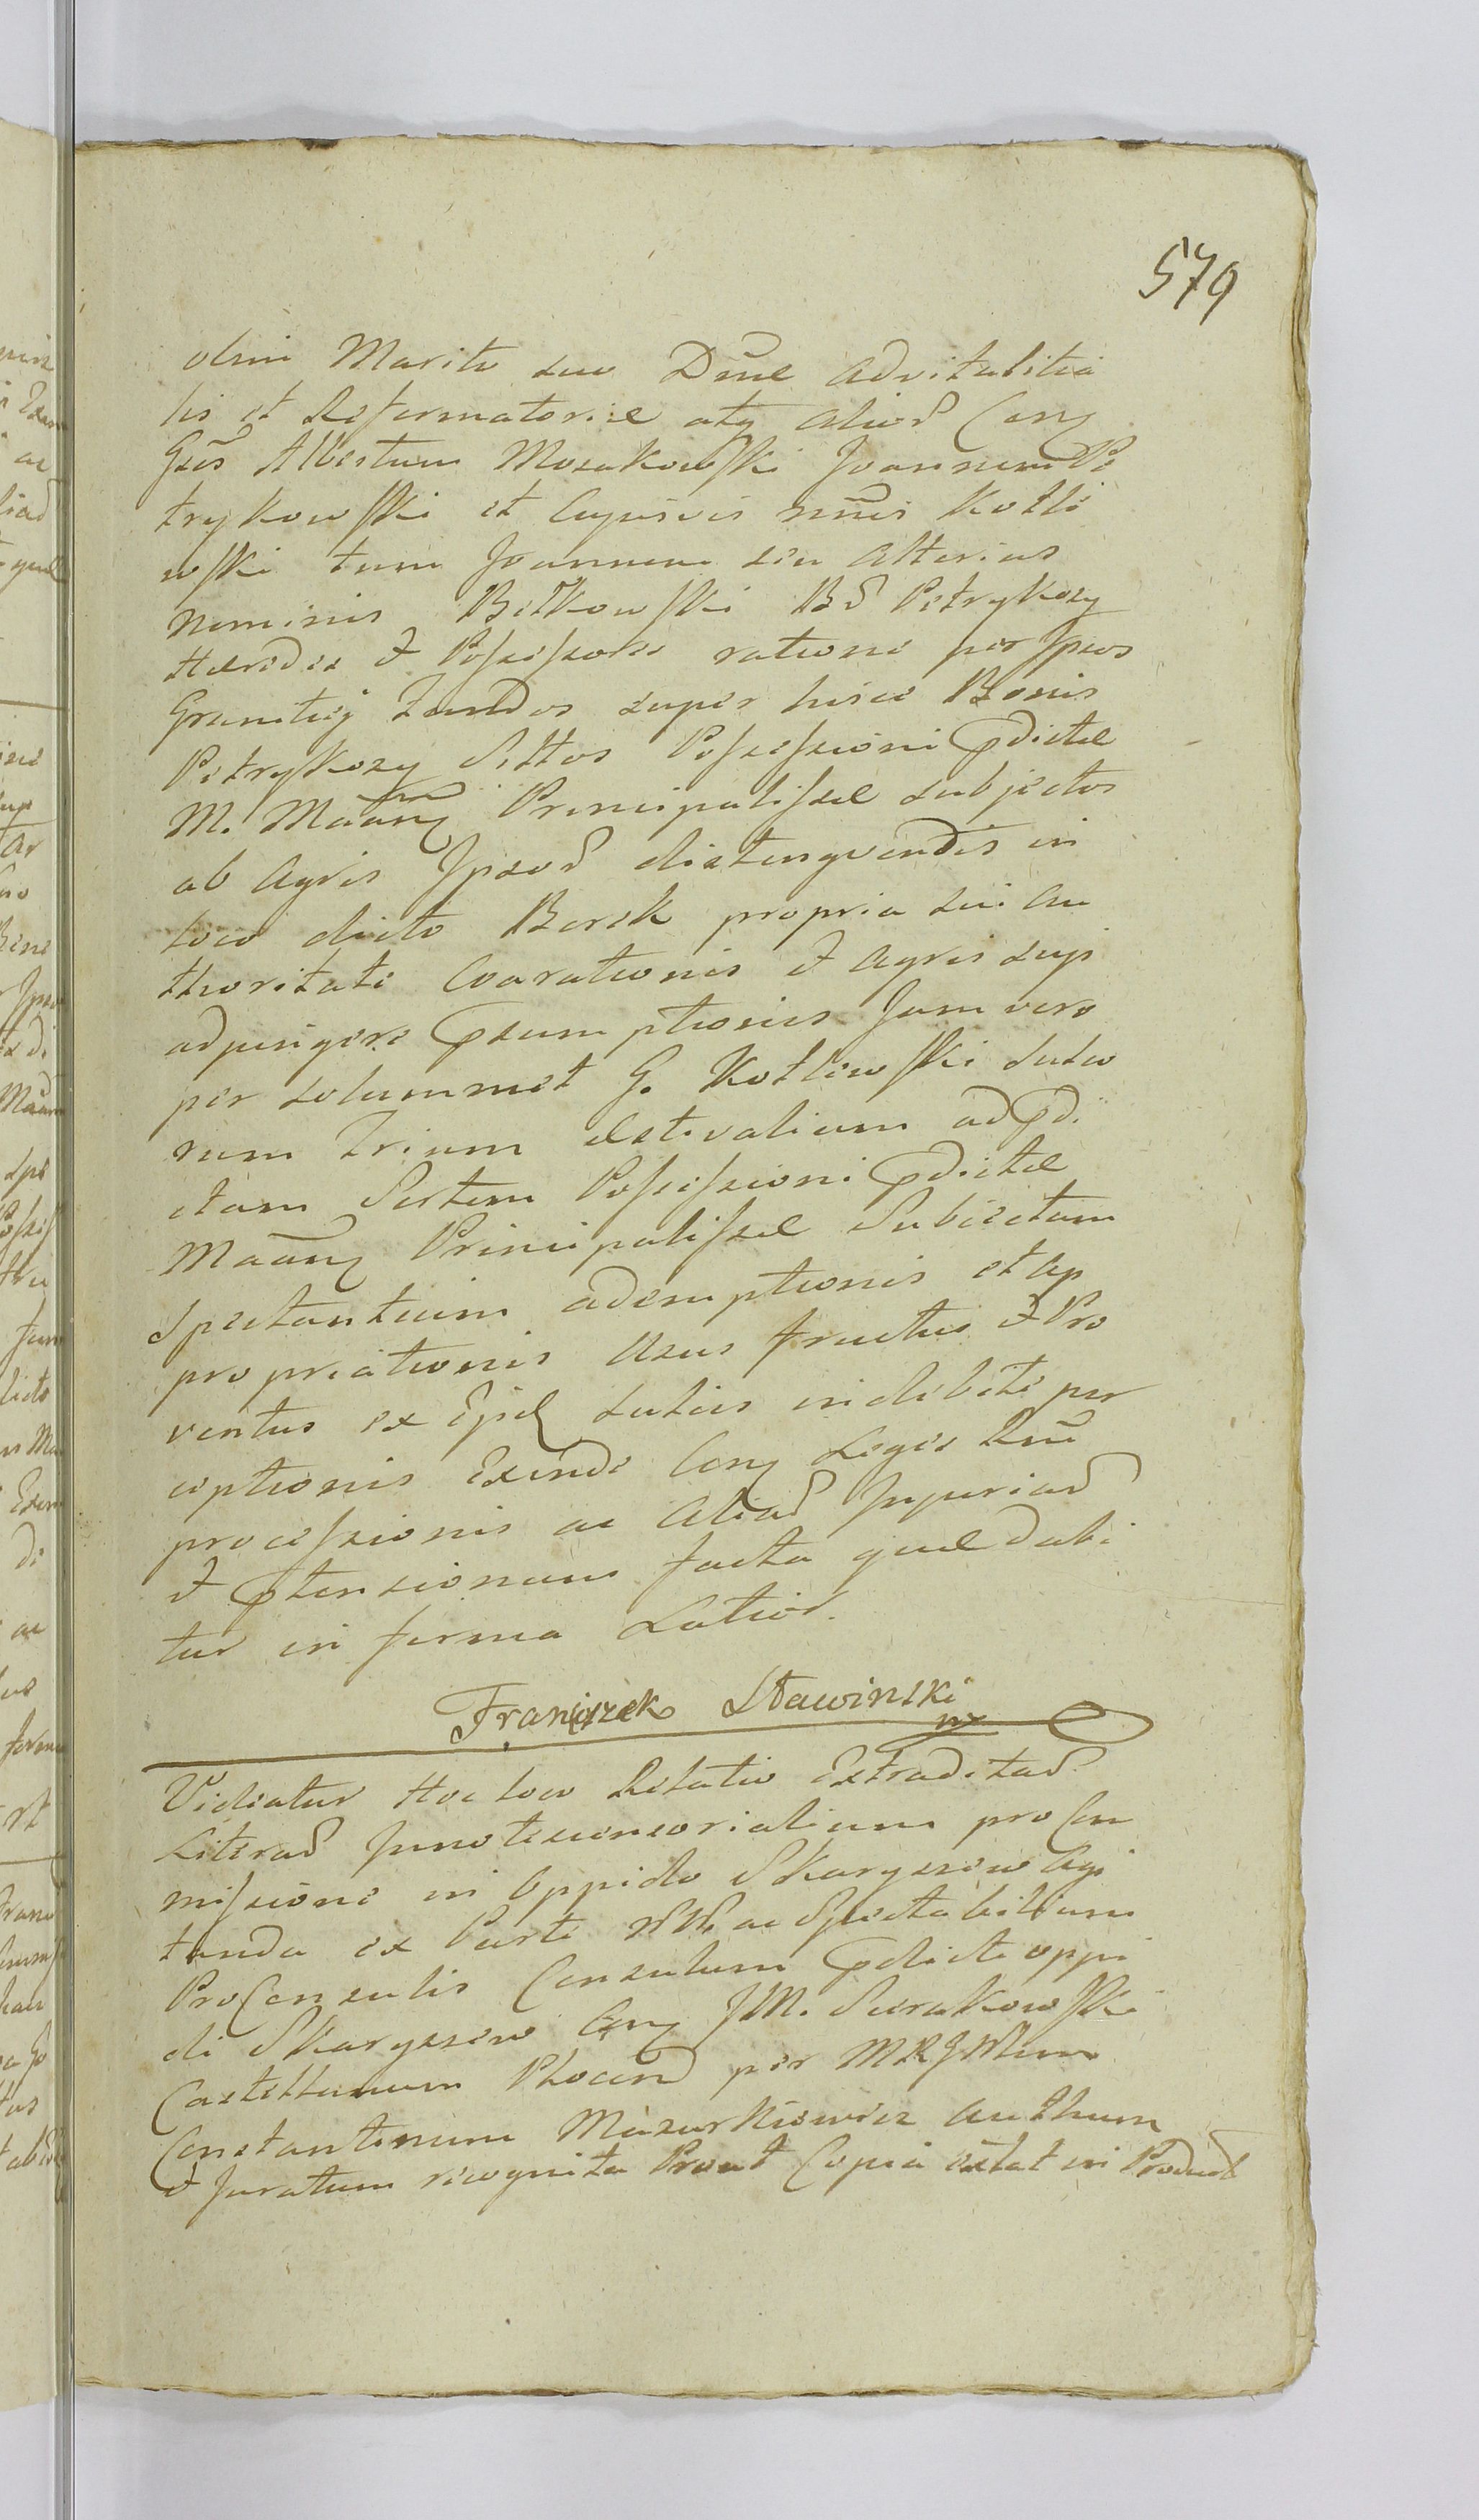 579
olim Marito suo Dnae Advitalitia
lis et Reformatoriae atq alior Cong
Gsos Albertum Mozakowski Joannem Pe
trykowski et Cujusvis nnis Kotli
wski tum Joannem seu Alterius
nominis Bełkowski Br Petrykozy
Haeredes & Possessores ratione per Ipsos
Granitiej Fundos super hisce Bonis
Petrykozy Sittos Possessioni pdictae
M. Maanq Principalissae subjectos
ab Agris Ipsor distingvendis in
loco dicto Borek propria sui Au
thoritate Coarationis & Agris supi
adjungere psumptionis Jam vero
per solummet G. Kotlewski Suto
rum trium aestivalium ad pdi
ctam Sortem Possessioni pdictae
Maanq Principalissae Subiectam
Spectantium ademptionis et ap
propriationis Usus fructus & Pro
ventus ex Epis sutiis indebite per
ceptionis Exinde Cong Leges Rni
processionis ac Aliar Injuriar
& ptensionum facta quae dabi
tur in forma Latior.
Franciszek Sławinski
mp
Videatur Hoc loco Relatio Extraditar
Literar Innotescensorialium pro Com
missione in Oppido Skaryszew Agi
tanda ex Parte NN. ac Spectabilium
ProConsulis Consulum pdicti oppi
di Skaryszew Cong JM. Sierakowski
Castellanum Plocen per MRGNlem
Constantinum Mazurkiewicz Authum
& Juratum recognita Prout Copia extat in Product